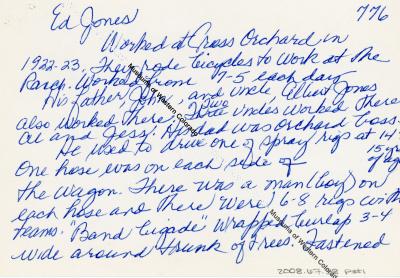 Ed Jones 776
Worked at Cross Orchard in
1922-23. They rode bicycles to work at the
Ranch. Worked from 7-5 each day
His father, John, and uncle, Albert Jones
also worked there. Two Uncles worked there
Al and Jess. His Dad was Orchard boss.
He used to drive one of spray rigs at 14-
15 yrs of age
One hose was on each side of
the wagon. There was a man (boy) on
each hose and there were 6-8 rigs with
teams. Band brigade" wrapped burlap 3-4
wide around trunk of trees. Fastened
Museums of Western Colorado
Museums of Western Colorado
2008.67.